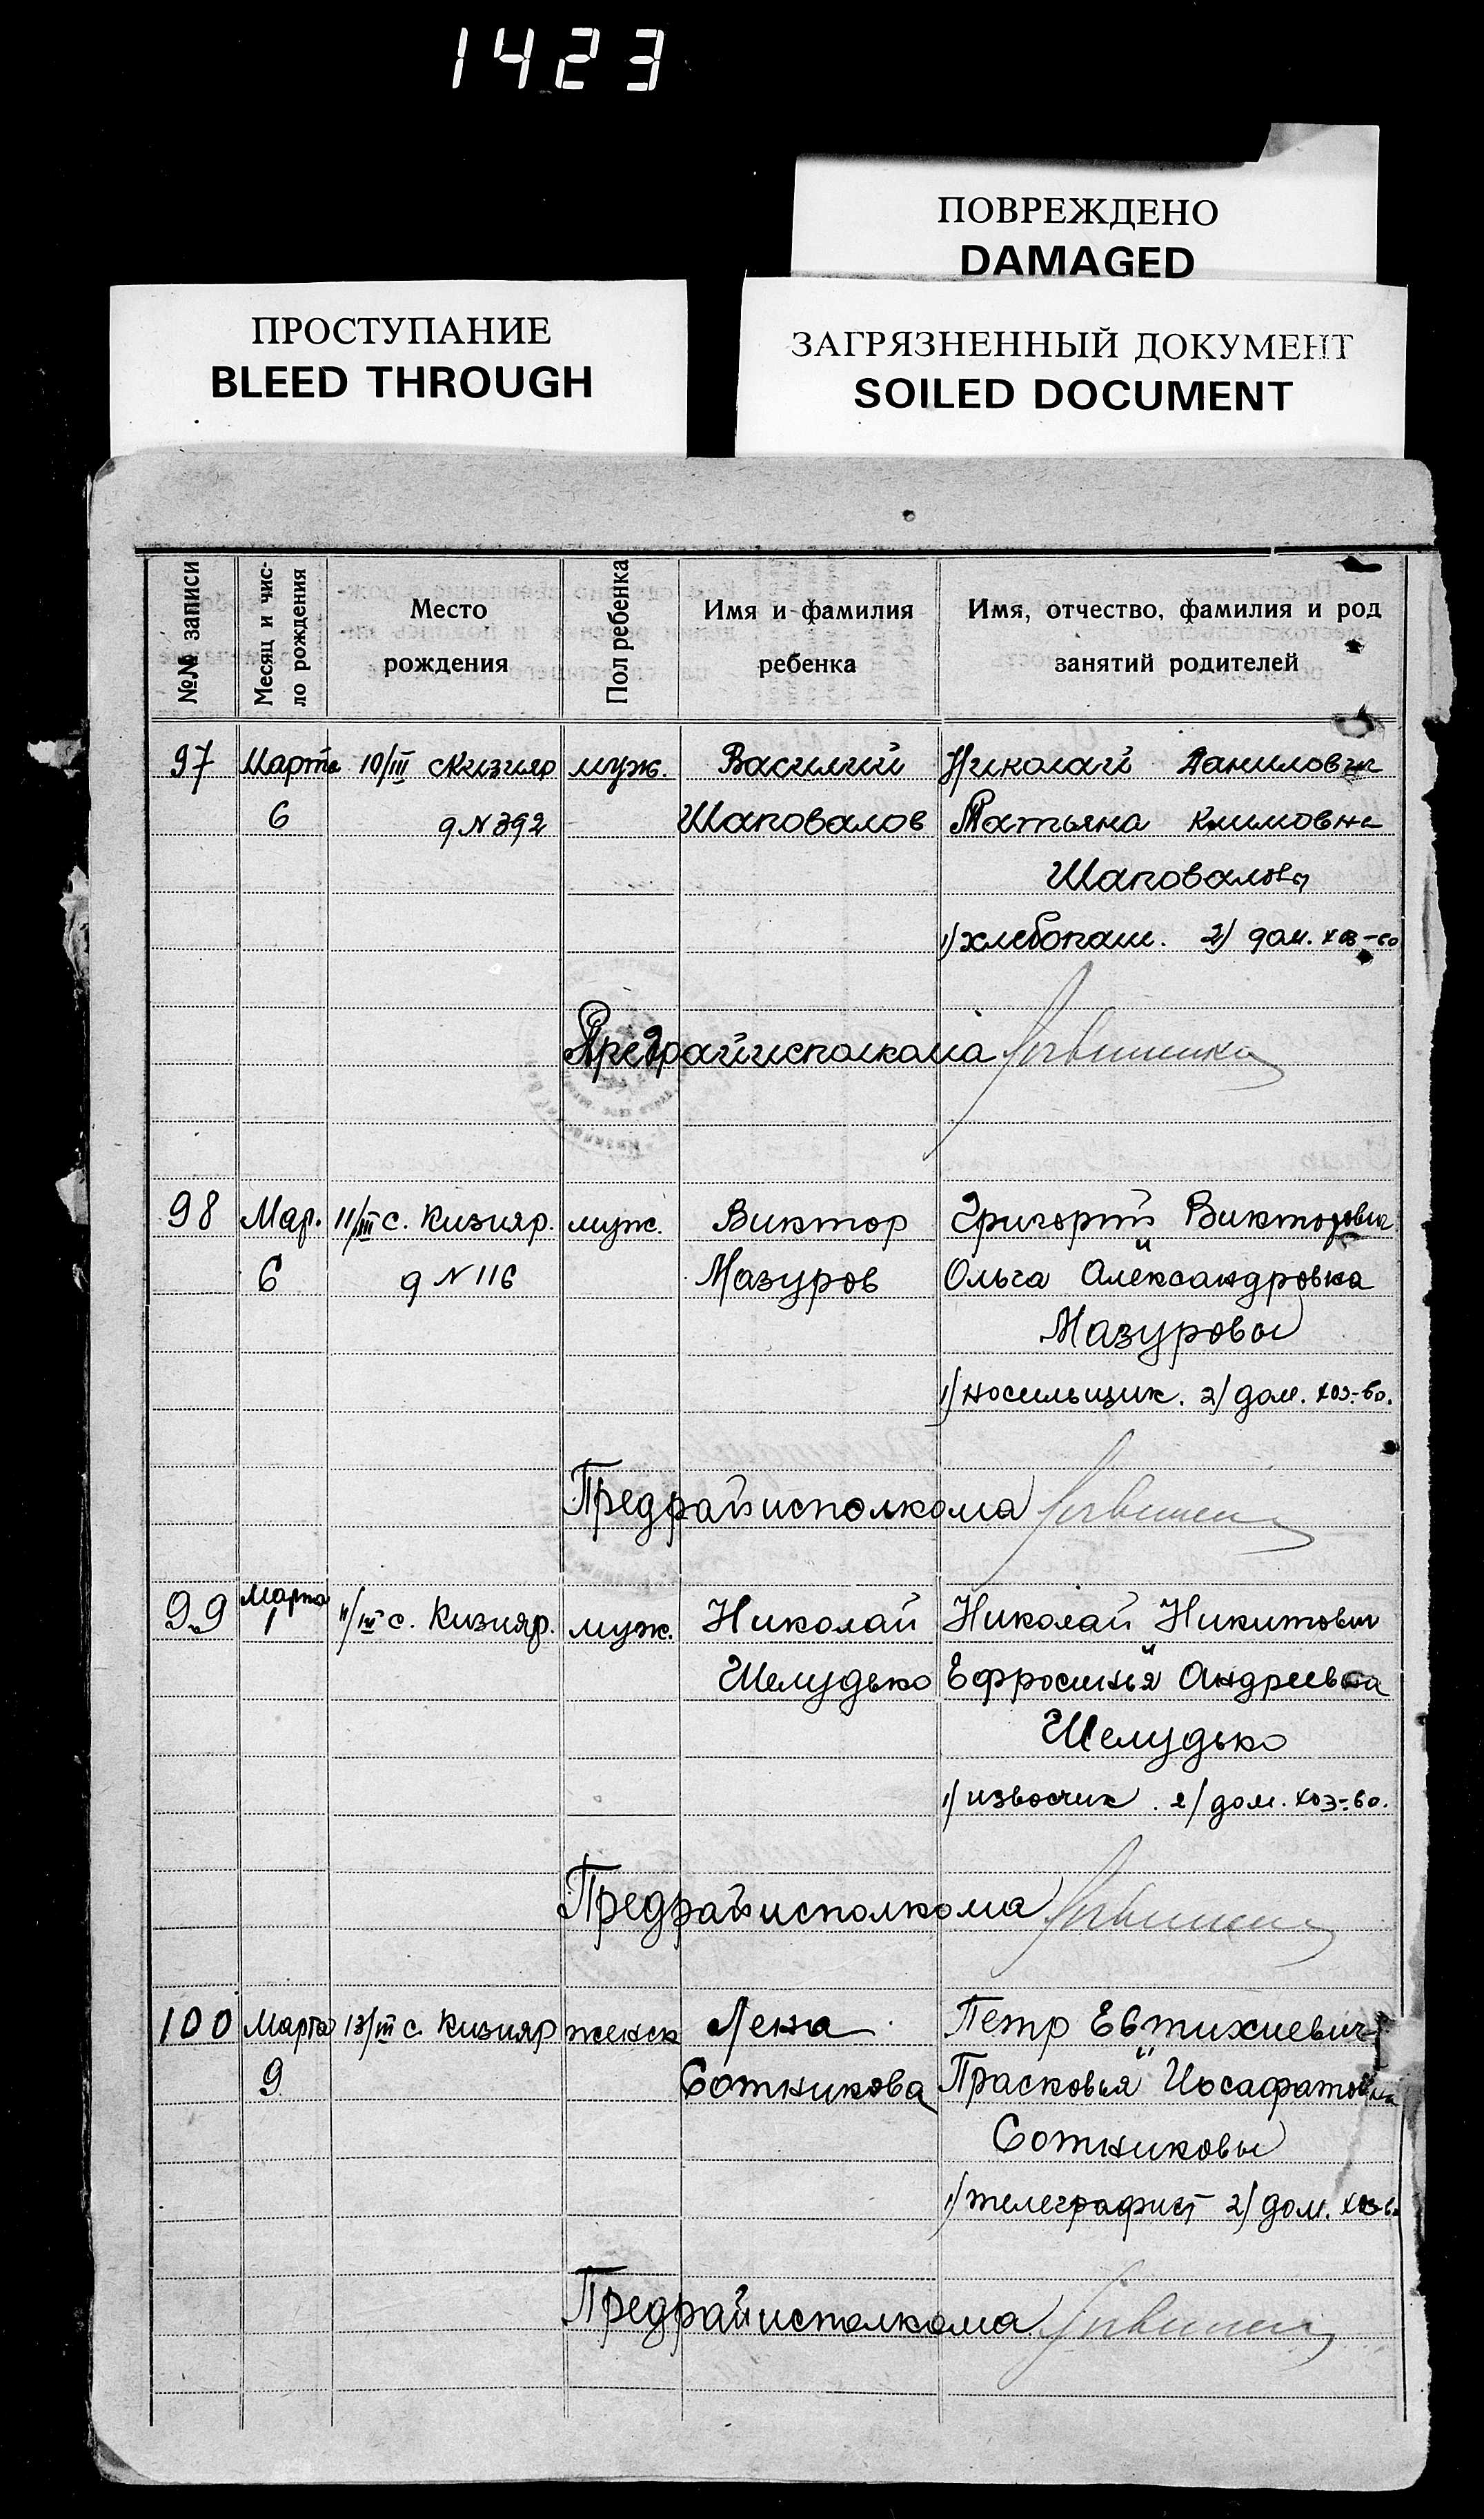 1423
ПОВРЕЖДЕНО
DAMAGED
ПРОСТУПАНИЕ
BLEED THROUGH
ЗАГРЯЗНЕННЫЙ ДОКУМЕНТ
SOILED DOCUMENT
№№ записи
Месяц и чис-
ло рождения
Место
рождения
Пол ребенка
Имя и фамилия
ребенка
Имя, отчество, фамилия и род
занятий родителей
97 Марта 10/III с Кизияр муж. Василий Николай Данилович
6 д N 392 Шаповалов Татьяна Климовна
Шаповаловы
1) хлебопаш. 2) дом. хоз-во
Предрайисполкома
98 Мар. 11/III с. Кизияр. муж. Виктор Григорий Викторович
и
6 д N 116 Мазуров Ольга Александровна
Мазуровы
1) носильщик. 2) дом. хоз-во.
Предрайисполкома
99 Марта 11/III с. Кизияр. муж. Николай Николай Никитович
1
и
Шелудько Ефросинья Андреевна
Шелудько
1) извосчик. 2) дом. хоз-во.
Предрайисполкома
100 Марта 13/III с. Кизияр женск Лена Петр Евтихиевич
и
9 Сотникова Прасковья Иосафатовна
Сотниковы
1) телеграфист 2) дом. хоз-во
Предрайисполкома